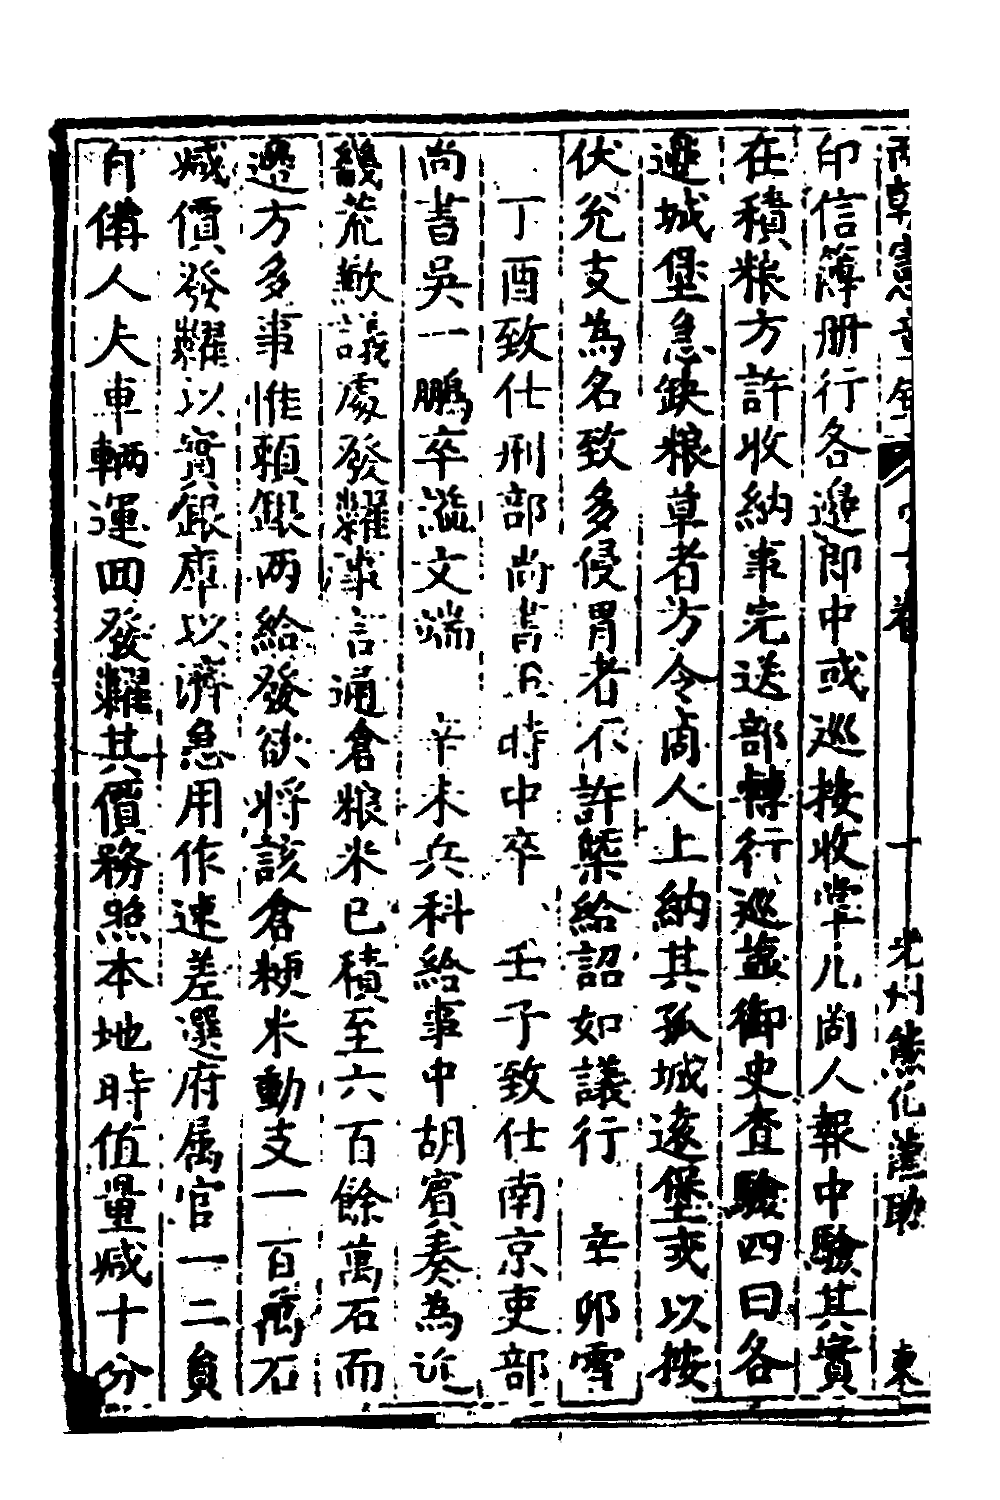 兩朝憲章錄 卷 十 光州熊化 助 東
印信簿册行各邊郎中或巡按收掌凡啇人報中驗其實
在積粮方許收納事完送部轉行巡鹽御史查驗四曰各
邊城堡急缺粮草者方令啇人上納其孤城遠堡更以按
伏兊支為名致多侵冐者不許槩給詔如議行 辛卯雪
丁酉致仕刑部尚書 時中卒 壬子致仕南京吏部
尚書吳一鵬卒謚文端 辛未兵科給事中胡賓奏為近
畿荒歉議處發糶事言通倉粮米已積至六百餘萬石而
邊方多事惟賴銀两給發欲將該倉粳米動支一百萬石
减價發糶以實銀庫以濟急用作速差選府属官一二員
自備人夫車輛運回發糶其價務照本地時值量减十分